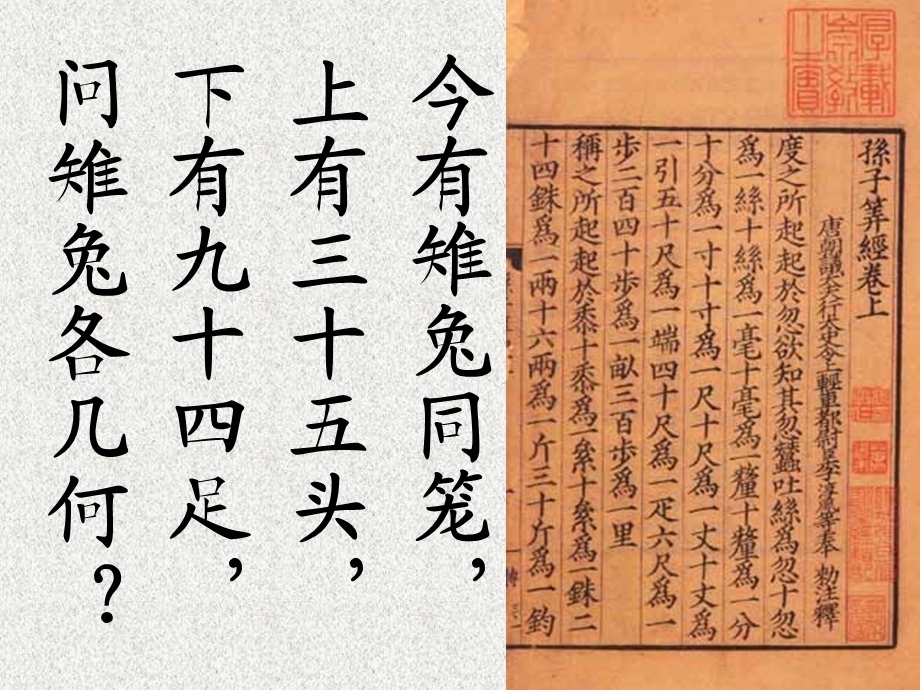 今有雉兔同笼，
上有三十五头，
下有九十四足，
问雉兔各几何？
孫子筭經卷上
度之所起起於忽欲知其忽蠶吐絲為忽十忽
為一絲十絲為一毫十毫為一釐十釐為一分
十分為一寸十寸為一尺十尺為一丈十丈為
一引五十尺為一端四十尺為一疋六尺為一
步二百四十步為一畝三百步為一里
稱之所起起於黍十黍為一絫十絫為一銖二
十四銖為一兩十六兩為一斤三十斤為一鈞